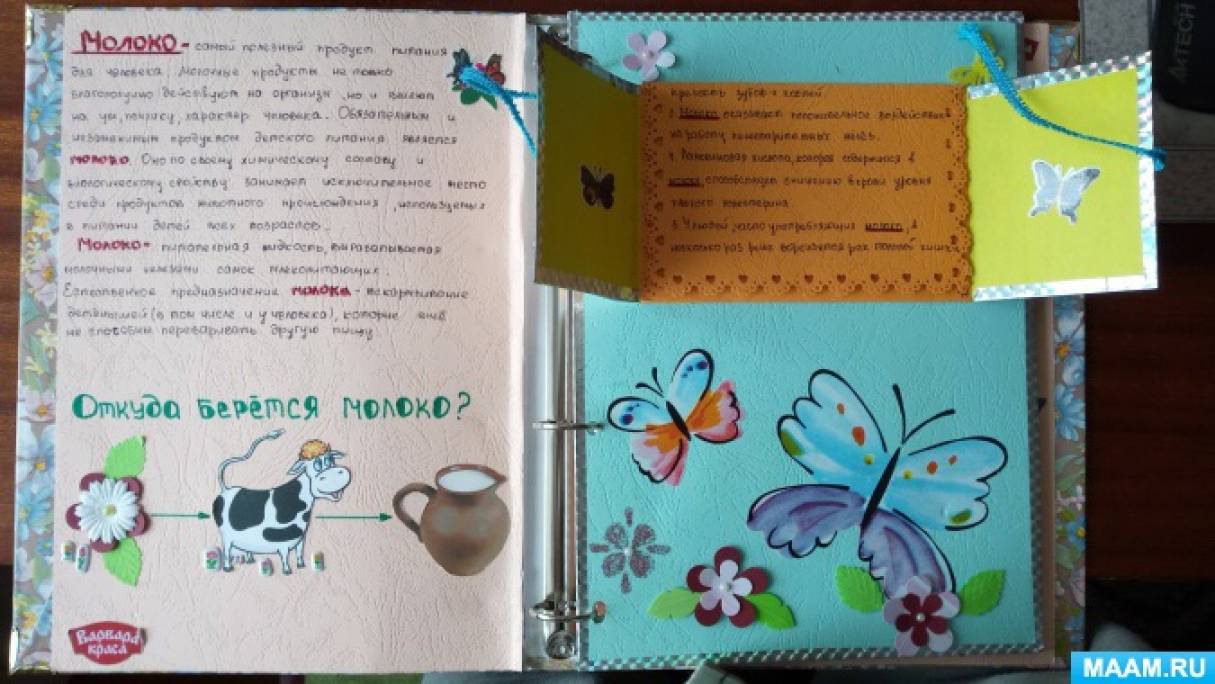 Молоко - самый полезный продукт питания
для человека. Молочные продукты не только
благотворно действуют на организм, но и влияют
на ум, психику, характер человека. Обязательным и
незаменимым продуктом детского питания является
молоко. Оно по своему химическому составу и
биологическому свойству занимает исключительное место
среди продуктов животного происхождения, используемых
в питании детей всех возрастов.
Молоко - питательная жидкость, вырабатываемая
молочными железами самок млекопитающих.
Естественное предназначение молока - вскармливание
детёнышей (в том числе и у человека), которые ещё
не способны переваривать другую пищу.
Откуда берётся молоко?
Варвара
краса
зубов и костей
Молоко оказывает положительное воздействие
на работу
4. кислота, которая содержится в
молоке, способствует снижению в крови уровня
плохого холестерина.
5. У людей, часто употребляющих молоко, в
несколько раз реже рак
A4TECH
MAAM.RU